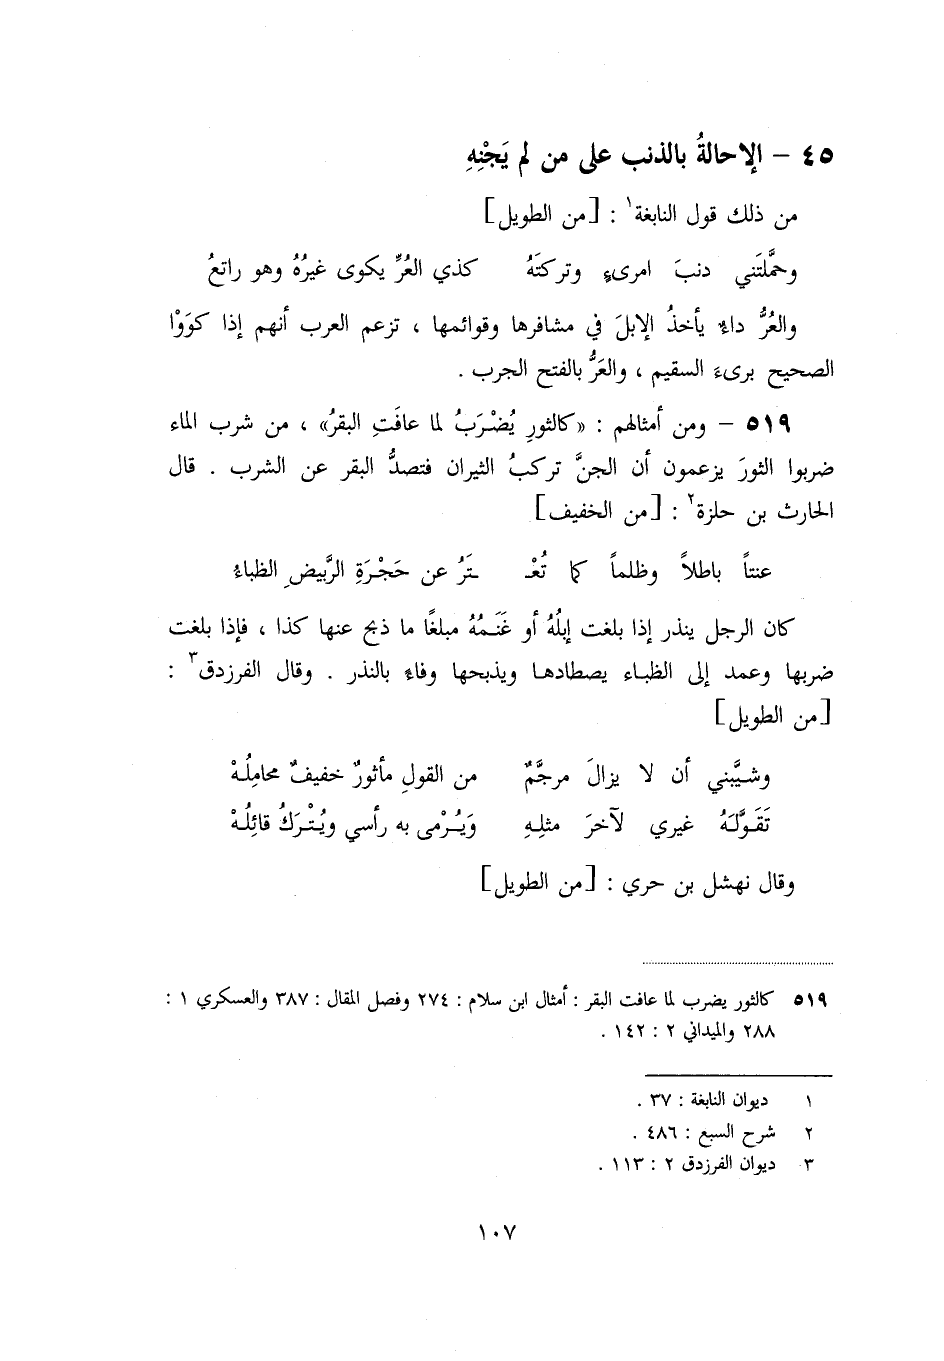 ٤٥ – الإحالةُ بالذنب على من لم يَجْنِهِ
من ذلك قول النابغة١ : [من الطويل]
وحمَّلتَني دنبَ امرىءٍ وتركتَهُ كذي العُرِّ يكوى غيرُهُ وهو راتعُ
والعُرُّ داءٌ يأخذُ الإبلَ في مشافرها وقوائمها ، تزعم العرب أنهم إذا كوَوْا
الصحيح برىءَ السقيم ، والعَرُّ بالفتح الجرب .
٥١٩ – ومن أمثالهم : «كالثورِ يُضْرَبُ لما عافَتِ البقرُ» ، من شرب الماء
ضربوا الثورَ يزعمون أن الجنَّ تركبُ الثيران فتصدُّ البقر عن الشرب . قال
الحارث بن حلزة٢ : [من الخفيف]
عنتاً باطلاً وظلماً كما تُعْـ ـتَرُ عن حَجْرَةِ الرَّبيضِ الظباءُ
كان الرجل ينذر إذا بلغت إبلُهُ أو غَنَمُهُ مبلغًا ما ذبح عنها كذا ، فإذا بلغت
ضربها وعمد إلى الظباء يصطادها ويذبحها وفاءً بالنذر . وقال الفرزدق٣ :
[من الطويل]
وشيَّبني أن لا يزالَ مرجَّمٌ من القولِ مأثورٌ خفيفٌ محامِلُهْ
تَقَوَّلَهُ غيري لآخرَ مثلِهِ وَيُرْمى به رأسي ويُتْرَكُ قائِلُهْ
وقال نهشل بن حري : [من الطويل]
٥١٩ كالثور يضرب لما عافت البقر : أمثال ابن سلام : ٢٧٤ وفصل المقال : ٣٨٧ والعسكري ١ :
٢٨٨ والميداني ٢ : ١٤٢ .
١ ديوان النابغة : ٣٧ .
٢ شرح السبع : ٤٨٦ .
٣ ديوان الفرزدق ٢ : ١١٣ .
١٠٧